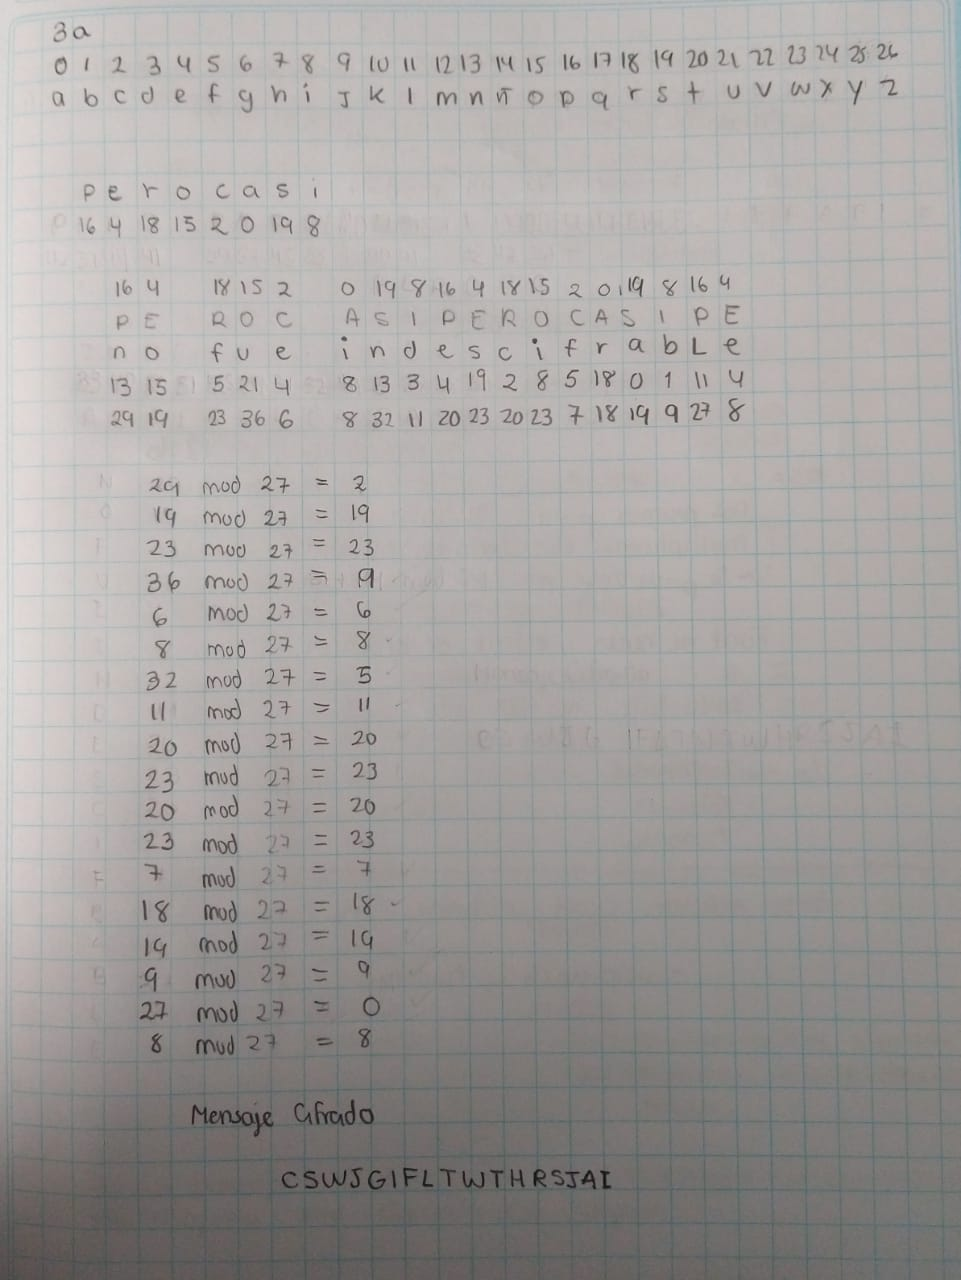 3a
0 1 2 3 4 5 6 7 8 9 10 11 12 13 14 15 16 17 18 19 20 21 22 23 24 25 26
a b c d e f g h i J k l m n ñ o p q r s t u v w x y z
p e r o c a s i
16 4 18 15 2 0 19 8
16 4 18 15 2 0 19 8 16 4 18 15 2 0 19 8 16 4
P E R O C A S I P E R O C A S I P E
n o f u e i n d e s c i f r a b L e
13 15 5 21 4 8 13 3 4 19 2 8 5 18 0 1 11 4
29 19 23 36 6 8 32 11 20 23 20 23 7 18 19 9 27 8
29 mod 27 = 2
19 mod 27 = 19
23 mod 27 = 23
36 mod 27 = 9
6 mod 27 = 6
8 mod 27 = 8
32 mod 27 = 5
11 mod 27 = 11
20 mod 27 = 20
23 mod 27 = 23
20 mod 27 = 20
23 mod 27 = 23
7 mod 27 = 7
18 mod 27 = 18
19 mod 27 = 19
9 mod 27 = 9
27 mod 27 = 0
8 mod 27 = 8
Mensaje Cifrado
CSWJGIFLTWTHRSJAI